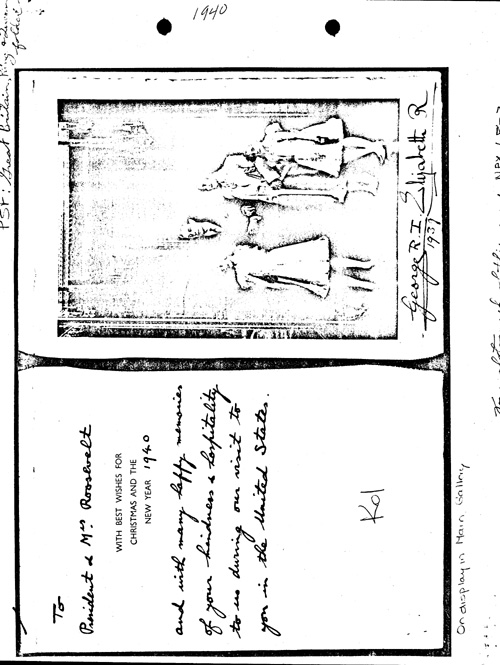 1940
PSF: Great Britain, King and Queen
folder
George R.I. Elizabeth R
1939
To
President & Mrs Roosevelt
WITH BEST WISHES FOR
CHRISTMAS AND THE
NEW YEAR 1940
and with many happy memories
of your kindness & hospitality
to us during our visit to
you in the United States.
On display in Main Gallery